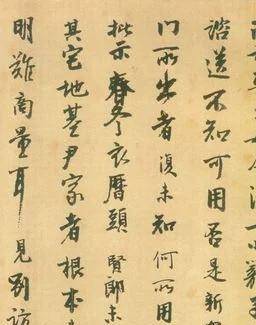 諮送不知可用否是新
門所出者復未知何所用
批示春冬衣曆頭賢郎未
其宅地基尹家者根本
明難商量耳見別訪